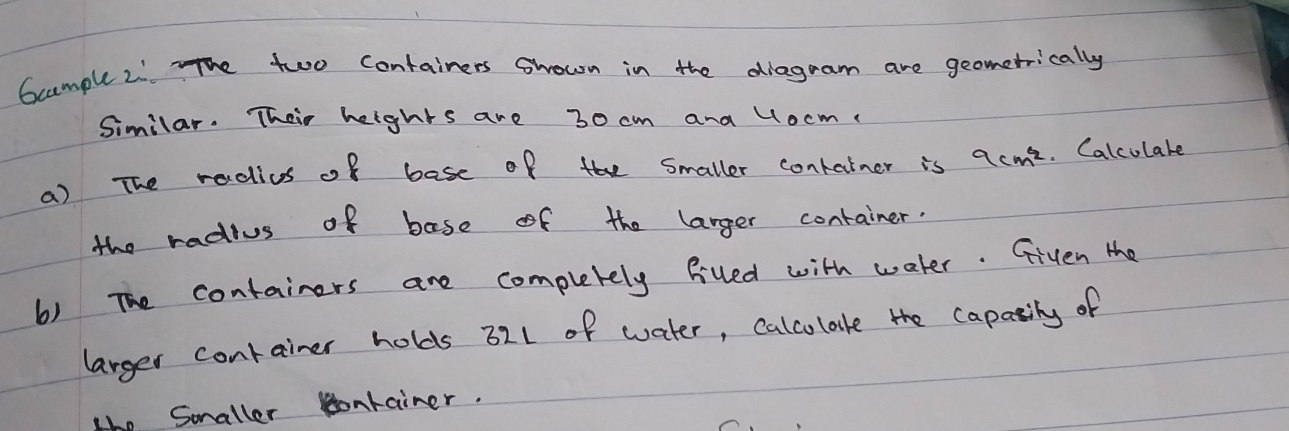 Example 2: The two containers shown in the diagram are geometrically
Similar. Their heights are 30 cm and 40cm.
a) The radius of base of the smaller container is 9cm². Calculate
the radius of base of the larger container.
b) The containers are completely filled with water. Given the
larger container holds 32L of water, calculate the capacity of
the smaller container.